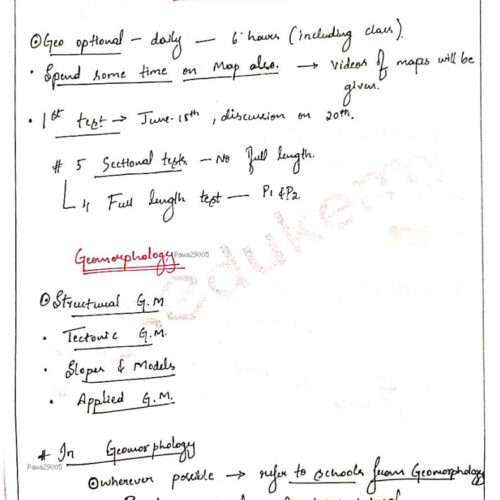 ⊙ Geo optional – daily — 6 hours (including class).
• Spend some time on Map also. → Videos of maps will be
given.
• 1st test → June-18th, discussion on 20th.
# 5 Sectional tests – No full length.
4 Full length test — P1 & P2
Geomorphology Pawa29005
⊙ Structural G.M
• Tectonic G.M.
• Slopes & Models
• Applied G.M.
# In Geomorphology
Pawa29005
⊙ wherever possible → refer to schools from Geomorphology
edukemy